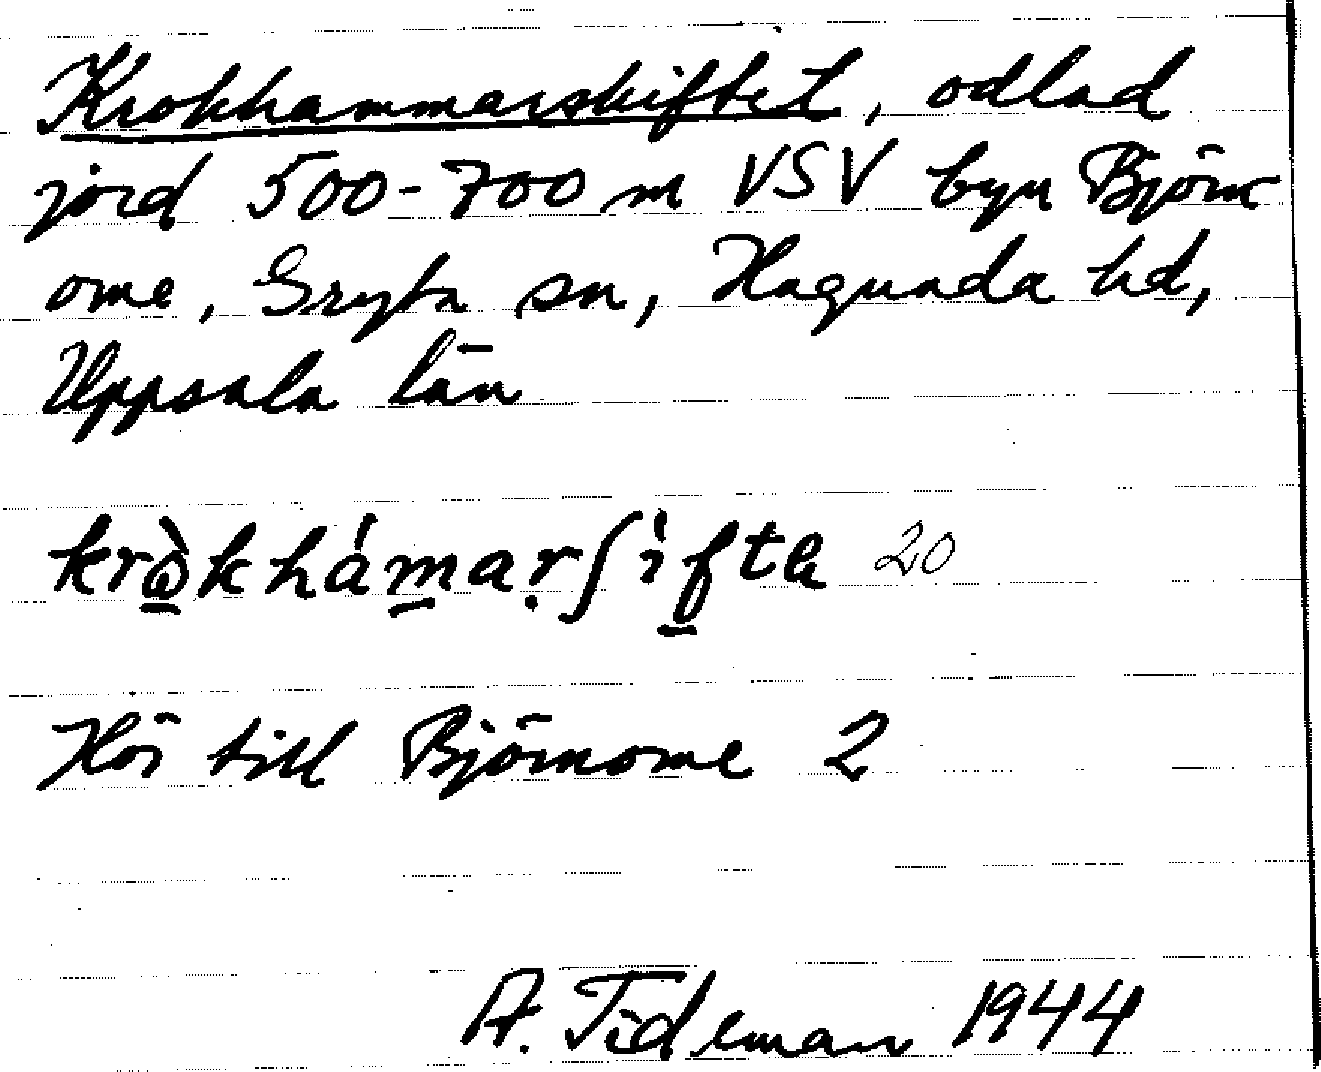 Krokhammarskiftet, odlad
jord 500-700 m VSV byn Björn
ome, Gryta sn, Hagunda hd,
Uppsala län
kròkhámarʃìfte 20
Hör till Björnome 2
A. Tideman 1944